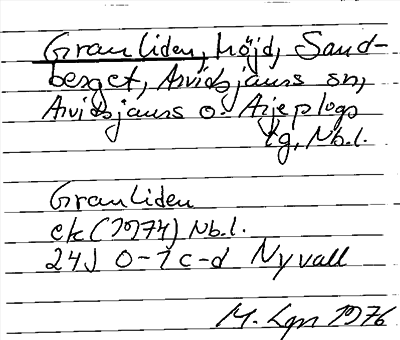 Granliden, höjd, Sand-
berget, Arvidsjaurs sn,
Arvidsjaurs o. Arjeplogs
tg, Nb.l.
Granliden
ek (1974) Nb.l.
24J 0-1 c-d Nyvall
M. Lgn 1976